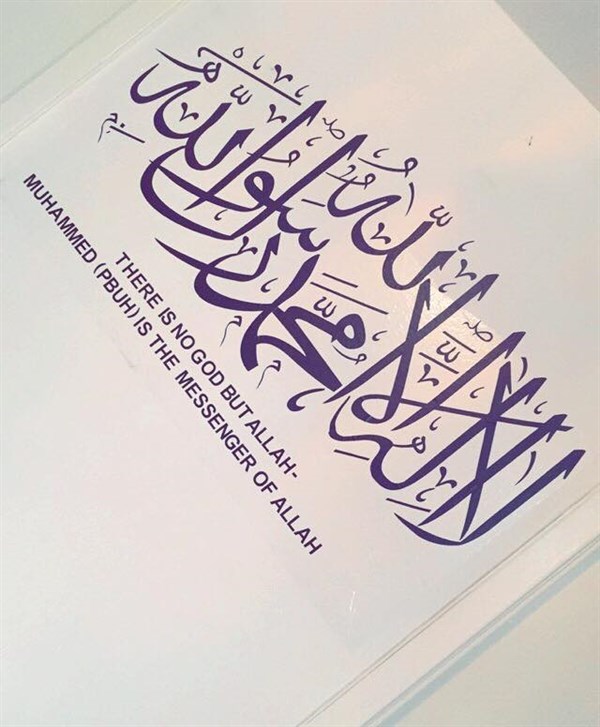 لا إله إلا الله محمد رسول الله
THERE IS NO GOD BUT ALLAH-
MUHAMMED (PBUH) IS THE MESSENGER OF ALLAH